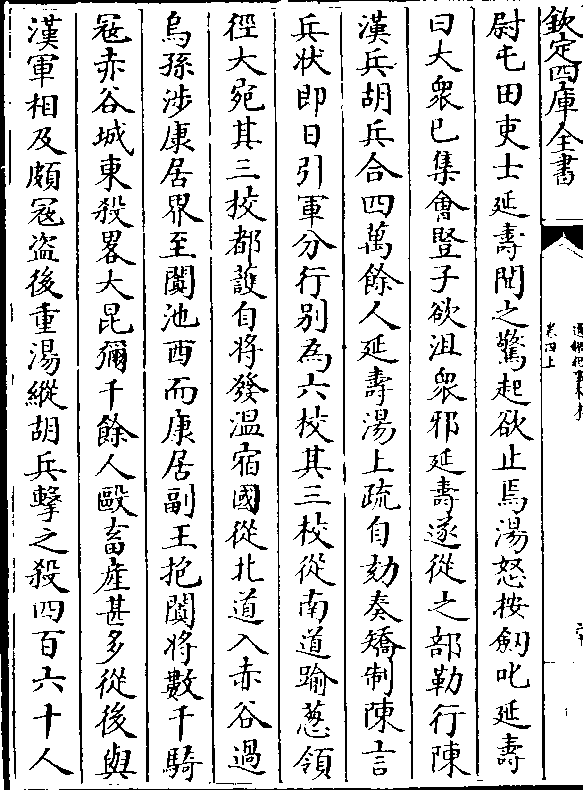 欽定四庫全書
卷四上
尉屯田吏士延壽聞之驚起欲止焉湯怒按劍叱延壽
曰大衆已集會豎子欲沮衆邪延壽遂從之部勒行陳
漢兵胡兵合四萬餘人延壽湯上疏自劾奏矯制陳言
兵状即日引軍分行别為六校其三校從南道踰葱領
徑大宛其三校都護自将發温宿國從北道入赤谷過
烏孫涉康居界至闐池西而康居副王抱闐将數千騎
冦赤谷城東殺畧大昆彌千餘人毆畜産甚多從後與
漢軍相及頗冦盗後重湯縱胡兵擊之殺四百六十人